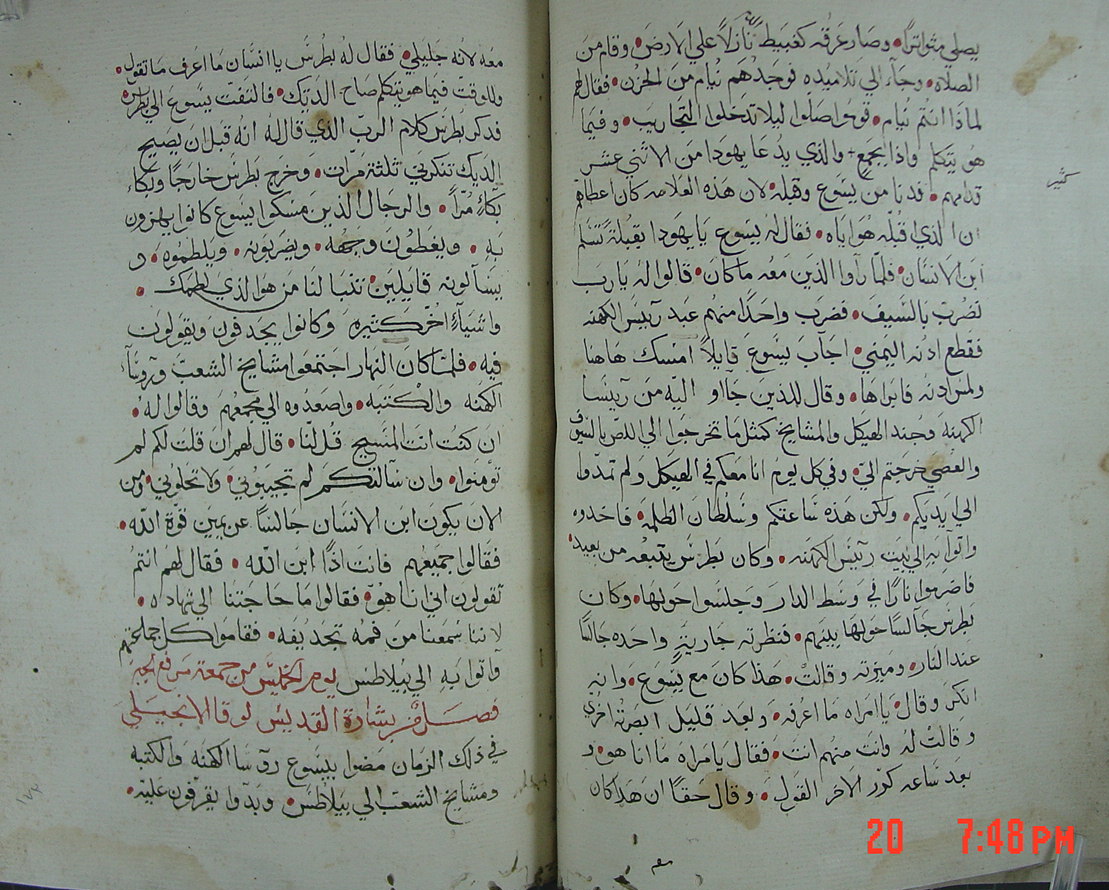 يصلي متواترًا • وصار عرقه كعبيط نازلاً علي الارض • وقام من
الصلاه • وجآء الي تلاميده فوجدهم نيام من الحزن • فقال لهم
لماذا انتم نيام • قوموا صلوا ليلا تدخلوا التجاريب • وفيما
هو يتكلم واذا بجمع + والذي يدعا يهودا من الاثني عشر
قدامهم • فدنا من يسوع وقبله • لان هذه العلامه كان اعطاهم
ان الذي اقبله هو اياه • فقال له يسوع يا يهودا بقبلة تسلم
ابن الانسان • فلما رآوا الذين معه ما كان • قالوا له يارب
نضرب بالسيف • فضرب واحدًا منهم عبد رئيس الكهنه
فقطع ادنه اليمني • اجاب يسوع قايلاً امسك هاهنا
ولمس ادنه فابراها • وقال للدين جااو اليه من رييسا
الكهنه وجند الهيكل والمشايخ كمثل ما تخرجوا الي اللص بالسيوف
والعصي خرجتم اليّ • وفي كل يوم انا معكم في الهيكل ولم تمدوا
الي يديكم • ولكن هذه ساعتكم وسلطان الظلمه • فاخدوه
واتوا به الي بيت رييس الكهنه • وكان بطرس يتبعه من بعيد •
فاضرموا نارًا في وسط الدار وجلسوا حولها • وكان
بطرس جالسًا حولها بينهم • فنظرته جارية واحده جالسًا
عند النار • وميزته وقالت • هذا كان مع يسوع • وانه
انكر وقال • يا امراه ما اعرفه • وبعد قليل ابصرته اخري
وقالت له وانت منهم انت • فقال يا مراه ما انا هو • و
بعد ساعه كرر الاخر القول • وقال حقًا ان هذا كان
كثير
معه لانه جليلي • فقال له بطرس يا انسان ما اعرف ما تقول •
وللوقت فيما هو يتكلم صاح الديك • فالتفت يسوع الي بطرس •
فدكر بطرس كلام الرب الذي قال له انه قبل ان يصيح
الديك تنكرني ثلثة مرات • وخرج بطرس خارجًا وبكاء
بكاءً مرًا • والرجال الذين مسكوا يسوع كانوا يهزون
به • ويغطون وجهه • ويضربونه • ويلطموه • و
يسالونه قايلين • تنبا لنا من هو الذي لطمك •
واشياءً اخر كثيره وكانوا يجدفون ويقولون
فيه • فلما كان النهار اجتمعوا مشايخ الشعب وروسآ
الكهنه والكتبه • واصعدوه الي مجمعهم وقالوا له •
ان كنت انت المسيح قل لنا • قال لهم ان قلت لكم لم
تؤمنوا • وان سالتكم لم تجيبوني • ولا تخلوني • ومن
الان يكون ابن الانسان جالسًا عن يمين قوة الله •
فقالوا جميعهم فانت اذًا ابن الله • فقال لهم انتم
تقولون اني انا هو • فقالوا ما حاجتنا الي شهاده •
لاننا سمعنا من فمه تجديفه • فقاموا كل جملتهم
واتوا به الي بيلاطس يوم الخميس من جمعة مرفع
فصل من بشارة القديس لوقا الانجيلي
في ذلك الزمان مضوا بيسوع روسا الكهنه والكتبه
ومشايخ الشعب الي بيلاطس • وبدوا يقرفون عليه •
١٧٧
20 7:48 PM